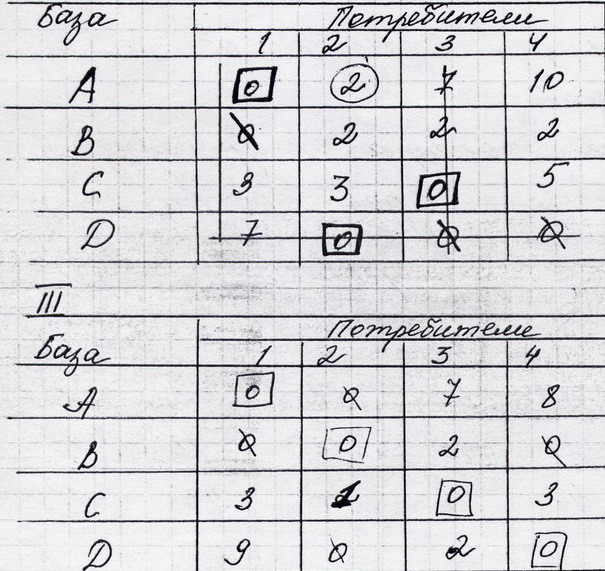 База Потребители
1 2 3 4
A 0 2 7 10
B 0 2 2 2
C 3 3 0 5
D 7 0 0 0
III
Потребители
База 1 2 3 4
A 0 0 7 8
B 0 0 2 0
C 3 0 3
D 9 0 2 0